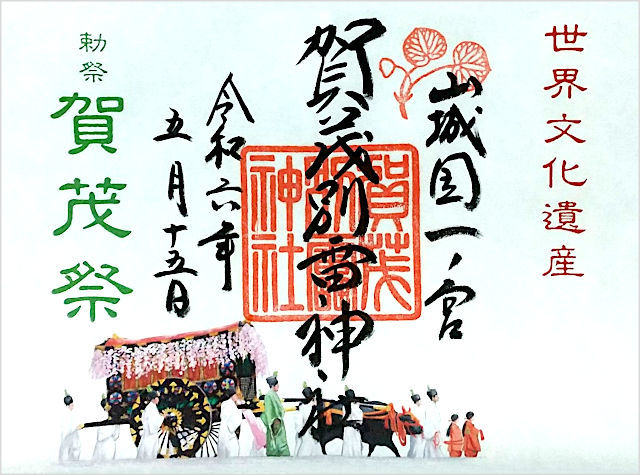 世界文化遺産
山城国一ノ宮
賀茂別雷神社
賀茂別雷神社
令和六年
五月十五日
勅祭
賀茂祭